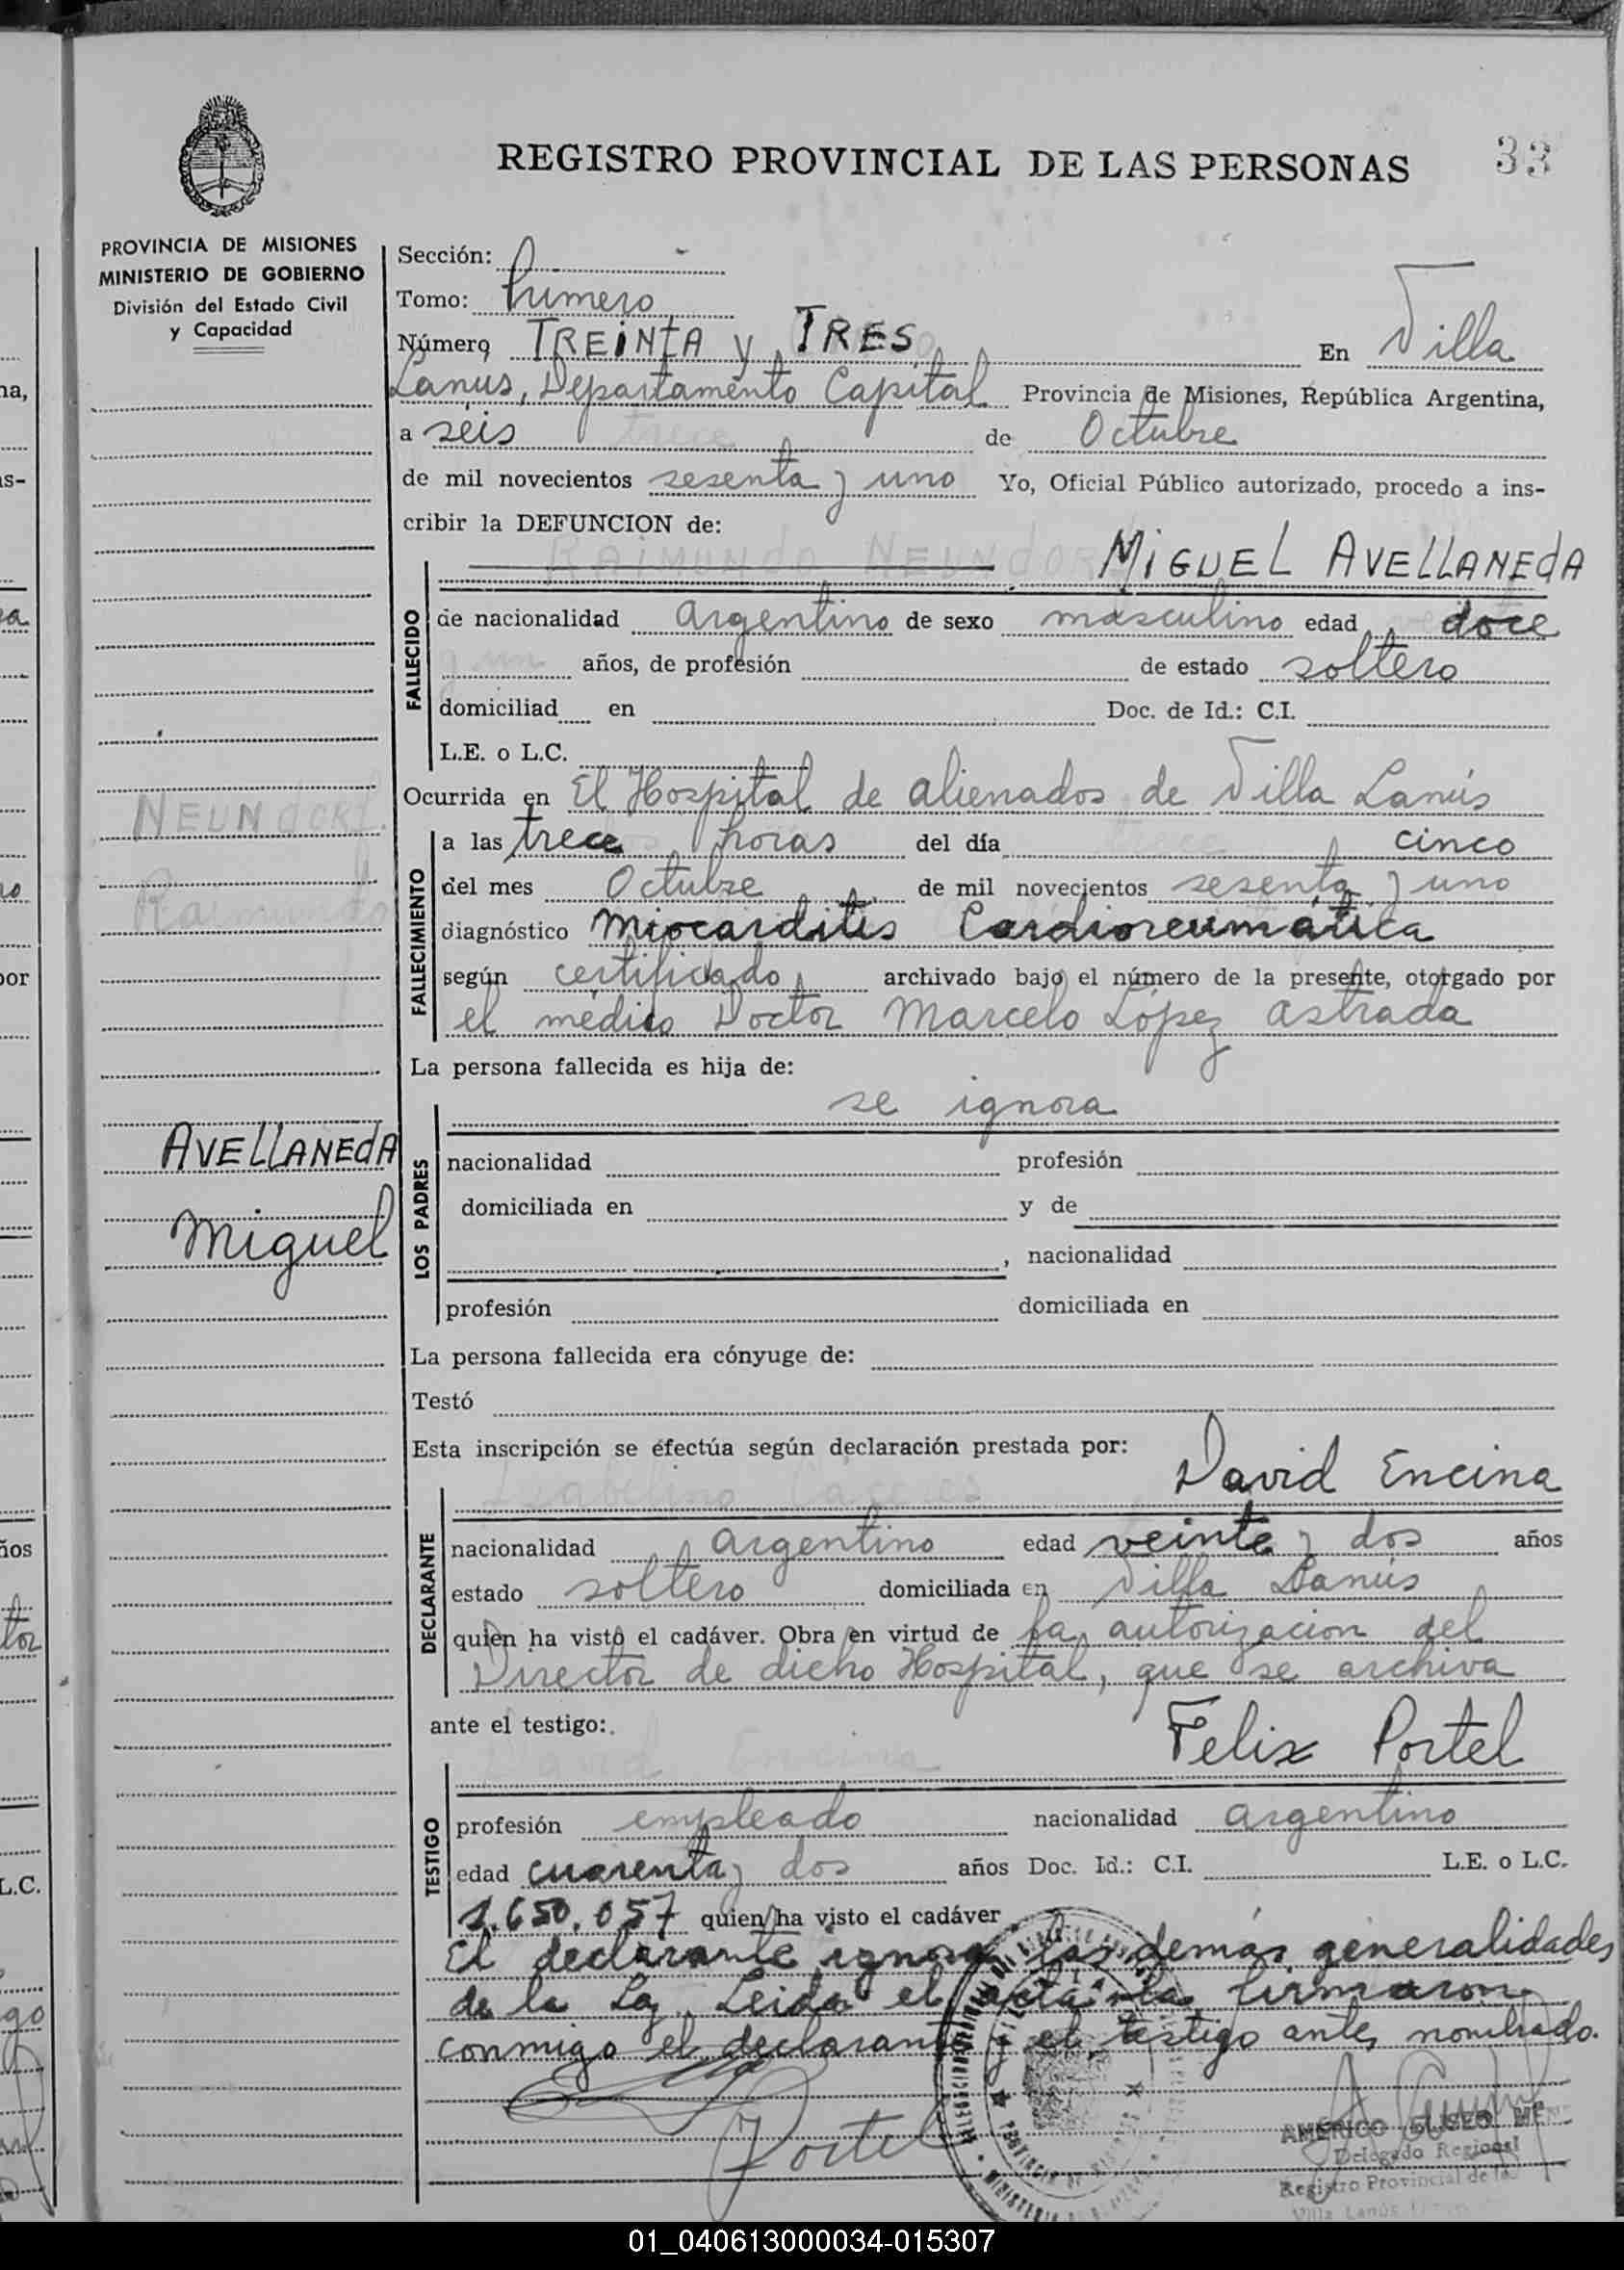 33
REGISTRO PROVINCIAL DE LAS PERSONAS
PROVINCIA DE MISIONES
MINISTERIO DE GOBIERNO
División del Estado Civil
y Capacidad
Sección:
Tomo: Primero
Número TREINTA y TRES En Villa
Lanus, Departamento Capital Provincia de Misiones, República Argentina,
a seis de Octubre
de mil novecientos sesenta y uno Yo, Oficial Público autorizado, procedo a ins-
cribir la DEFUNCION de:
MIGUEL AVELLANEDA
FALLECIDO
de nacionalidad argentino de sexo masculino edad doce
años, de profesión de estado soltero
domiciliad en Doc. de Id.: C.I.
L.E. o L.C.
Ocurrida en El Hospital de alienados de Villa Lanús
NEUNDORF
Raimundo
FALLECIMIENTO
a las trece horas del día cinco
del mes Octubre de mil novecientos sesenta y uno
diagnóstico Miocarditis Cardioreumática
según certificado archivado bajo el número de la presente, otorgado por
el médico Doctor Marcelo López Astrada
La persona fallecida es hija de:
se ignora
AVELLANEDA
Miguel
LOS PADRES
nacionalidad profesión
domiciliada en y de
, nacionalidad
profesión domiciliada en
La persona fallecida era cónyuge de:
Testó
Esta inscripción se efectúa según declaración prestada por:
David Encina
DECLARANTE
nacionalidad argentino edad veinte y dos años
estado soltero domiciliada en Villa Lanús
quien ha visto el cadáver. Obra en virtud de la autorizacion del
Director de dicho Hospital, que se archiva
ante el testigo:
Felix Portel
TESTIGO
profesión empleado nacionalidad argentino
edad cuarenta y dos años Doc. Id.: C.I. L.E. o L.C.
1.650.057 quien ha visto el cadáver
El declarante ignora las demás generalidades
de la Ley. Leida el acta la firmaron
conmigo el declarante y el testigo antes nombrado.
Portel
AMERICO ELISEO
Delegado Regional
Registro Provincial de las
Villa Lanús
01_040613000034-015307